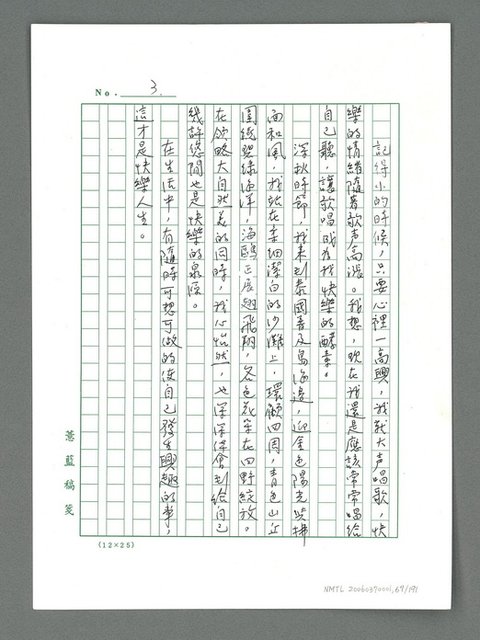 No. 3.
記得小的時候，只要心裡一高興，我就大声唱歌，快
樂的情緒隨着歌声高漲。我想，現在我還是應該常常唱給
自己聽，讓歌唱成為我快樂的酵素。
深秋時節，我來到泰國普及島海邊，迎金色陽光跟拂
面和風，我站在柔細潔白的沙灘上，環顧四周，青色山丘
圍繞碧綠海洋，海鷗正展翅飛翔，各色花朵在四野綻放。
在領略大自然美的同時，我心怡然，也深深体會到給自己
幾許悠閒也是快樂的泉源。
在生活中，有隨時可想可做的使自己發生興趣的事，
這才是快樂人生。
蕭藍稿箋
(12×25)
NMTL 20060370001, 69/191